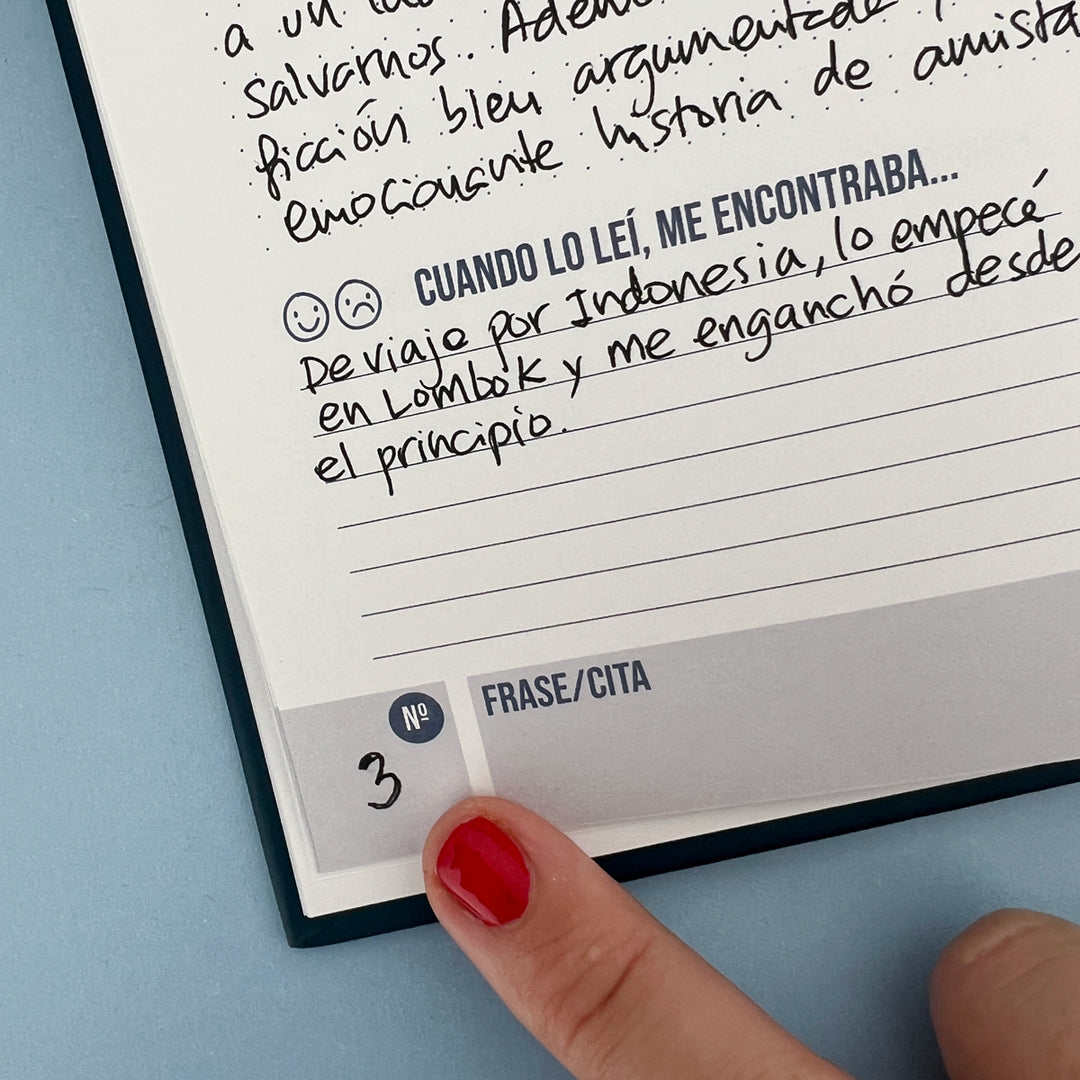 a un
salvarnos.. Adem
ficción bien argumentada
emocionante historia de amista
CUANDO LO LEÍ, ME ENCONTRABA...
De viaje por Indonesia, lo empecé
en Lombok y me enganchó desde
el principio.
Nº
3
FRASE/CITA